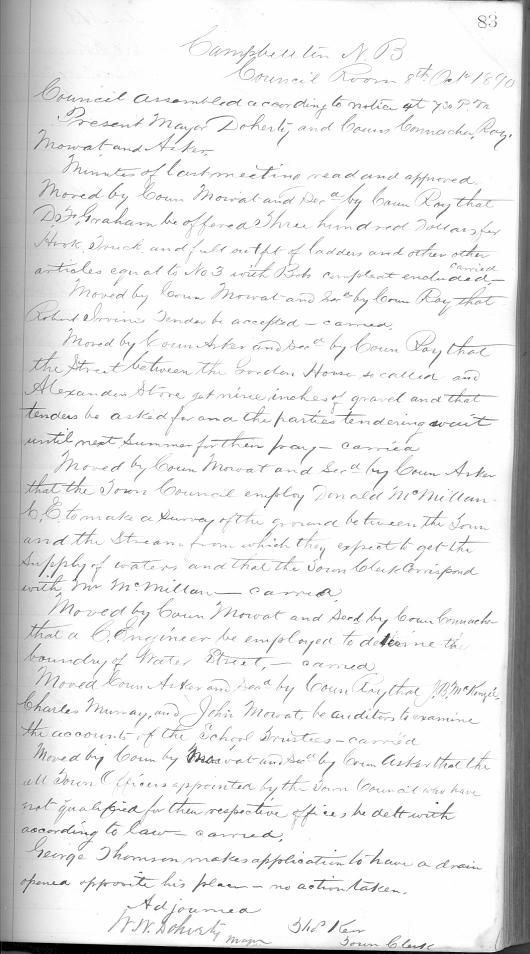 83
Campbellton N.B
Council Room 8th Oct 1890
Council assembled according to notice at 7.30 P.M
Present Mayor Doherty and Couns Connacher, Roy,
Mowat and Asker.
Minutes of last meeting read and approved.
Moved by Coun Mowat and Secd by Coun Roy that
Dr F. Graham be offered Three hundred Dollars for
Hook, Truck and full outfit of ladders and other other
articles equal to No 3 with Bobs compleat encluded — carried
Moved by Coun Mowat and Secd by Coun Roy that
Robert Irvine Tender be accepted — carried.
Moved by Coun Asker and Secd by Coun Roy that
the Street between the Gordon House so called and
Alexander Store get nine inches of gravel and that
tenders be asked for and the parties tendering wait
until next Summer for their pay — carried
Moved by Coun Mowat and Secd by Coun Asker
that the Town Council employ Donald McMillan
C.E. to make a Survey of the ground between the Town
and the Stream from which they expect to get the
Supply of waters and that the Town Clerk Correspond
with Mr McMillan — carried.
Moved by Coun Mowat and Secd by Coun Connacher
that a C. Engineer be employed to determine the
boundry of Water Street, — carried
Moved Coun Asker and Secd by Coun Roy that J.B. McKenzie,
Charles Murray, and John Mowat, be auditors to examine
the accounts of the School Trusties — carried
Moved by Coun by Mowat and Secd by Coun Asker that the
all Town Officers appointed by the Town Council who have
not qualified for their respective offices be delt with
according to law — carried.
George Thomson makes application to have a drain
opened opposite his place — no action taken.
Adjourned
W.W. Doherty Mayor
Kerr
Town Clerk